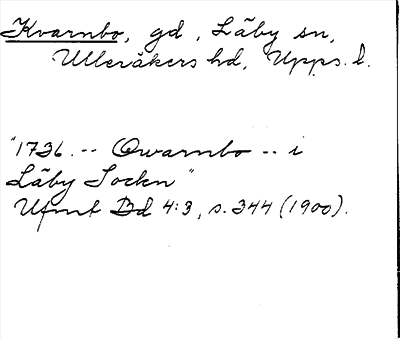 Kvarnbo, gd, Läby sn,
Ulleråkers hd, Upps. l.
"1736. -- Qwarnbo -- i
Läby Sockn"
Ufmt Bd 4:3, s. 344 (1900).